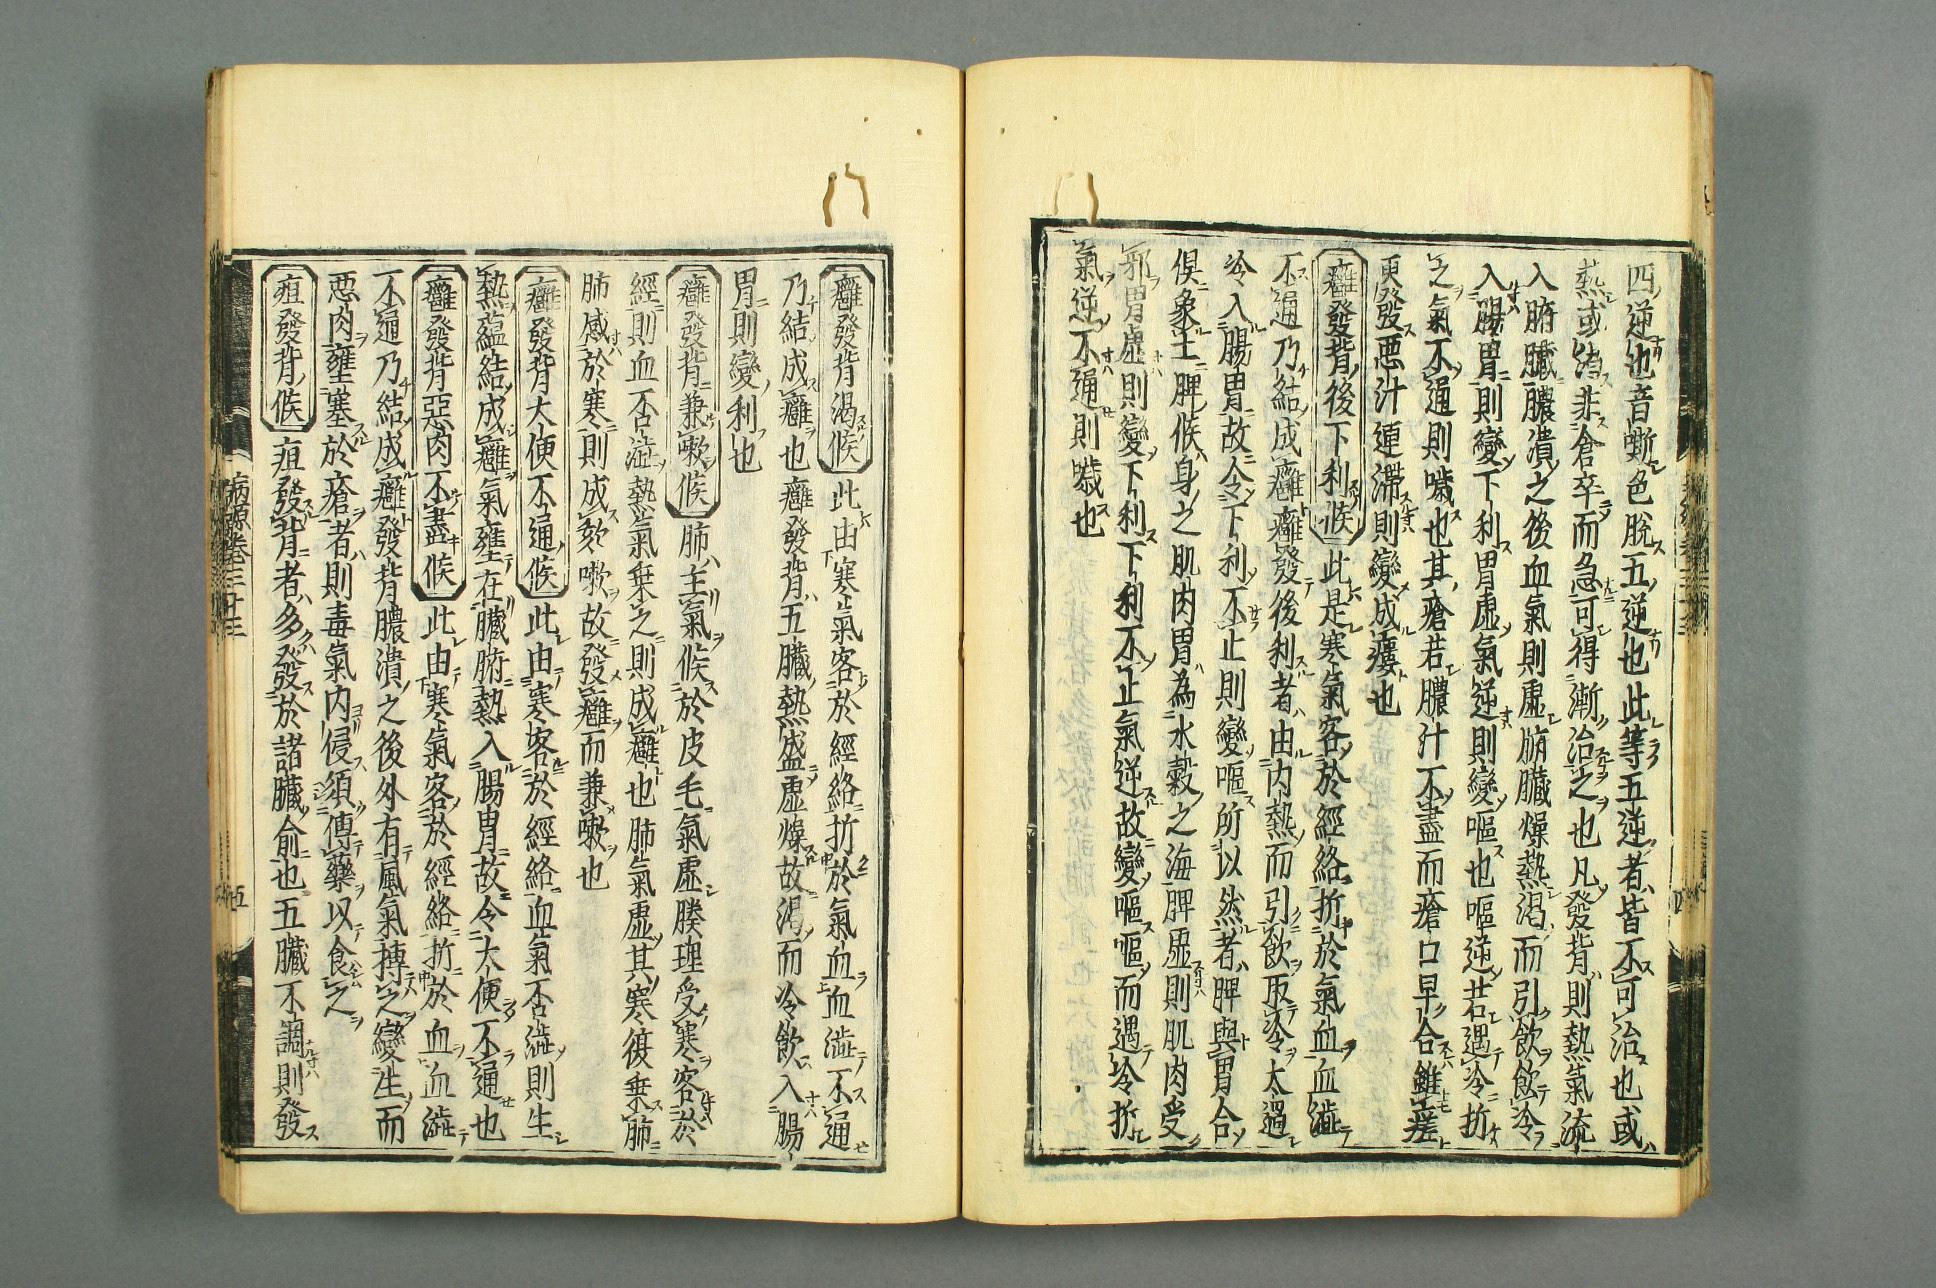 四逆也音嘶色脫五逆也此等五逆者皆不可治也或
熱或渴非倉卒而急可得漸治之也凡發背則熱氣流
入腑臟膿潰之後血氣則虛腑臟燥熱渴而引飲飲冷
入腸胃則變下利胃虛氣逆則變嘔也嘔逆若遇冷折
之氣不通則噦也其瘡若膿汁不盡而瘡口早合雖瘥
更發惡汁連滯則變成瘻也
癰發背後下利候此是寒氣客於經絡折於氣血血澁
不通乃結成癰癰發後利者由內熱而引飲取冷太過
冷入腸胃故令下利不止則變嘔所以然者脾與胃合
俱象土脾候身之肌肉胃為水穀之海脾虛則肌肉受
邪胃虛則變下利下利不止氣逆故變嘔嘔而遇冷折
氣逆不通則噦也
癰發背渴候此由寒氣客於經絡折於氣血血澁不通
乃結成癰也癰發背五臟熱盛虛燥故渴而冷飲入腸
胃則變利也
癰發背兼嗽候肺主氣候於皮毛氣虛腠理受寒客於
經則血不澁熱氣乗之則成癰也肺氣虛其寒復乗肺
肺感於寒則成欬嗽故發癰而兼嗽也
癰發背大便不通候此由寒客於經絡血氣否澁則生
熱蘊結成癰氣壅在臟腑熱入腸胃故令大便不通也
癰發背惡肉不盡候此由寒氣客於經絡折於血血澁
不通乃結成癰發背膿潰之後外有風氣摶之變生而
惡肉壅塞於瘡者則毒氣內侵須傅藥以食之
疽發背候疽發背者多發於諸臟俞也五臟不調則發
病源卷三十三
五